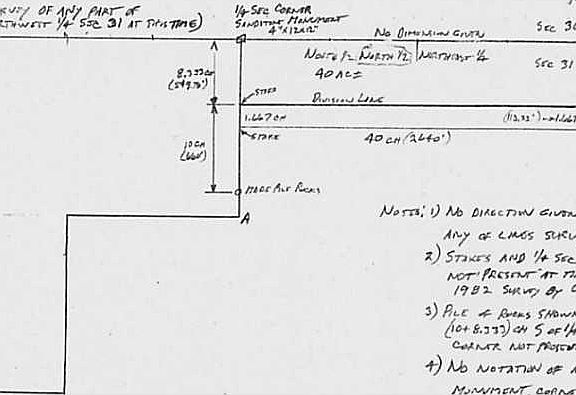 OF ANY PART OF
1/4 SEC 31 AT THIS TIME)
1/4 SEC CORNER
SANDSTONE MONUMENT
4"X12X12"
NO DIMENSION GIVEN
SEC 30
NORTH 1/2 NORTHEAST 1/4
SEC 31
40 AC±
8.333 CH
STAKE
DIVISION LINE
1.667 CH
STAKE
40 CH (2640')
10 CH
(660')
MADE PILE ROCKS
A
NOTES: 1) NO DIRECTION GIVEN
ANY OF LINES
2) STAKES AND 1/4 SEC
NOT PRESENT AT
1982 SURVEY BY
3) PILE OF ROCKS SHOWN
(10+8.333) CH S OF 1/4
CORNER NOT PRESENT
4) NO NOTATION OF
MONUMENT CORNE